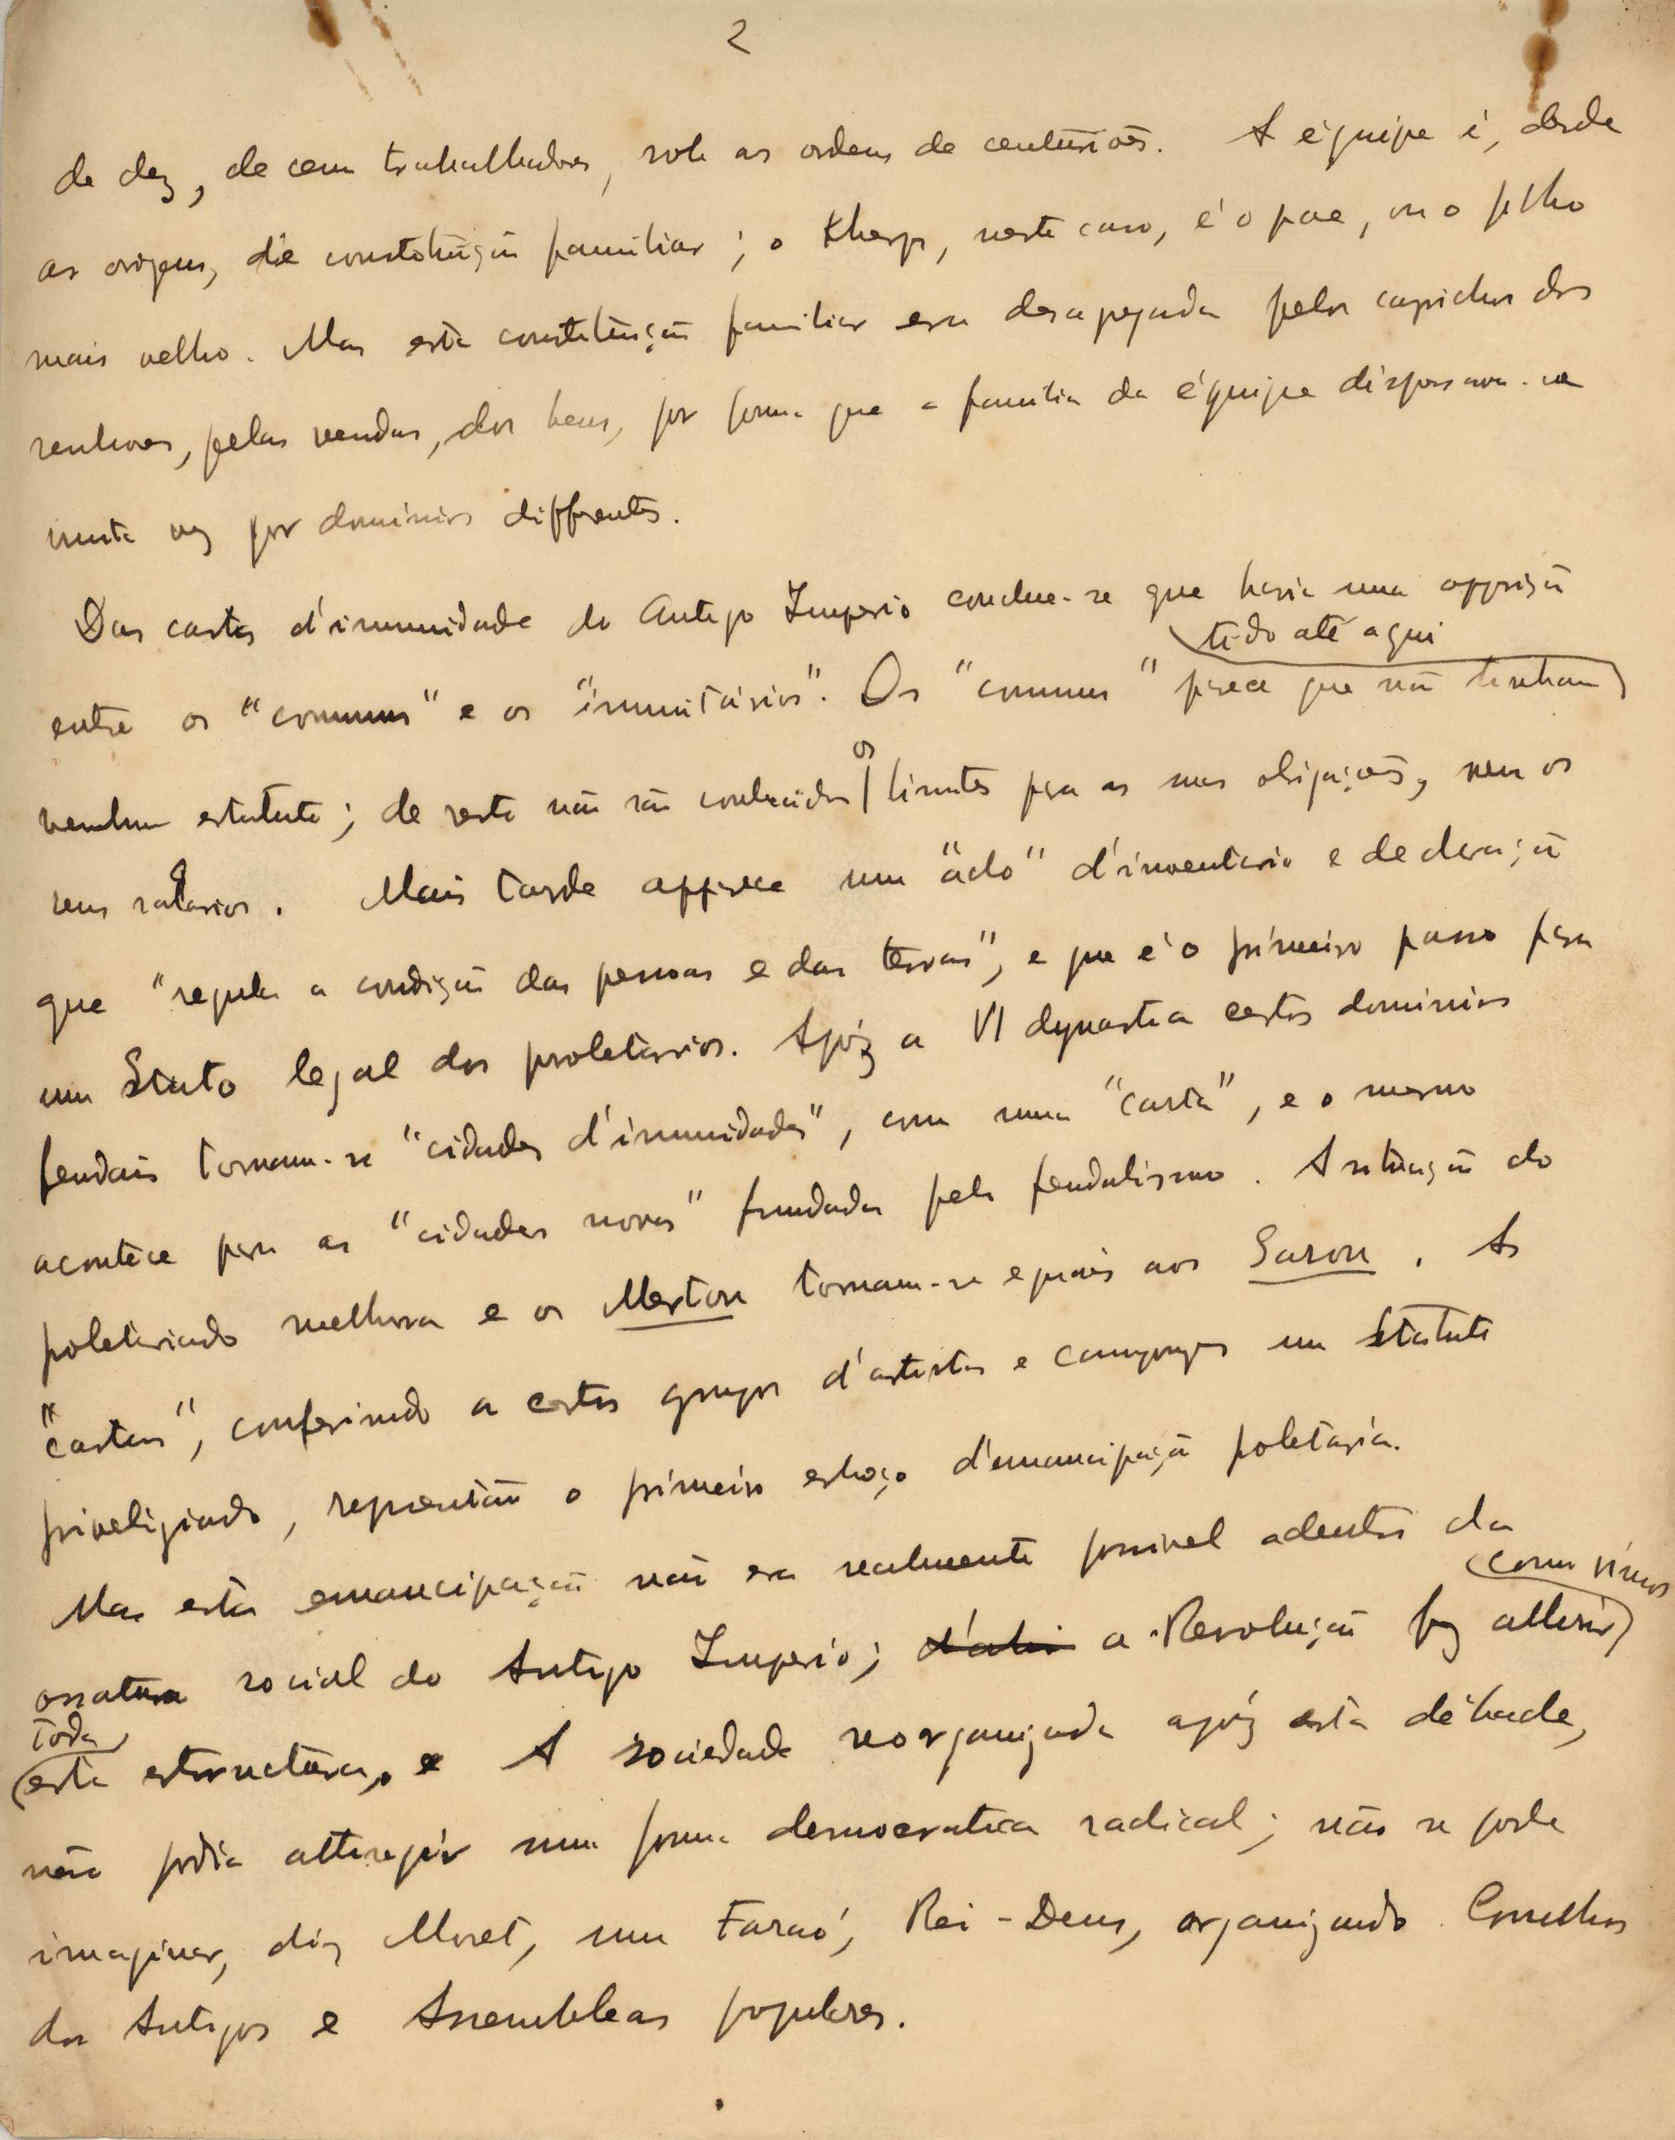 2
de dez, de cem trabalhadores, sob as ordens de centuriões. A équipe é, desde
as origens, de constituição familiar; o Kherp, neste caso, é o pae, ou o filho
mais velho. Mas esta constituição familiar era desapegada pelos caprichos dos
senhores, pelas vendas, dos bens, por forma que a familia da équipe dispersava-se
muita vez por dominios differentes.
Das cartas d'immunidade do Antigo Imperio conclue-se que havia uma opposição
tido até aqui
entre os "communs" e os "immunitários". Os "communs" parece que não tenham
nenhum estatuto; de resto não são conhecidos os limites para as suas obrigações, nem os
seus salarios. Mais tarde apparece um "acto" d'inventario e declaração
que "regula a condição das pessoas e das terras", e que é o primeiro passo para
um Statuto legal dos proletarios. Apóz a VI dynastia certos dominios
feudais tornam-se "cidades d'immunidades", com uma "carta", e o mesmo
acontece para as "cidades novas" fundadas pelo feudalismo. A situação do
poletariado melhora e os Mertou tornam-se eguais aos Sarou. As
"cartas", conferindo a certos grupos d'artistas e camponezes um Statuto
priveligiado, representão o primeiro esboço d'emancipação poletaria.
Mas esta emancipação não era realmente possivel adentro da
como vimos
ossatura social do Antigo Imperio; d'ahi a Revolução fez alluir
toda
esta estructura, e A sociedade reorganizada apóz esta débacle,
não podia attingir uma forma democratica radical; não se pode
imaginar, diz Moret, um Faraó, Rei-Deus, organizando Conselhos
dos Antigos e Assembleas populares.